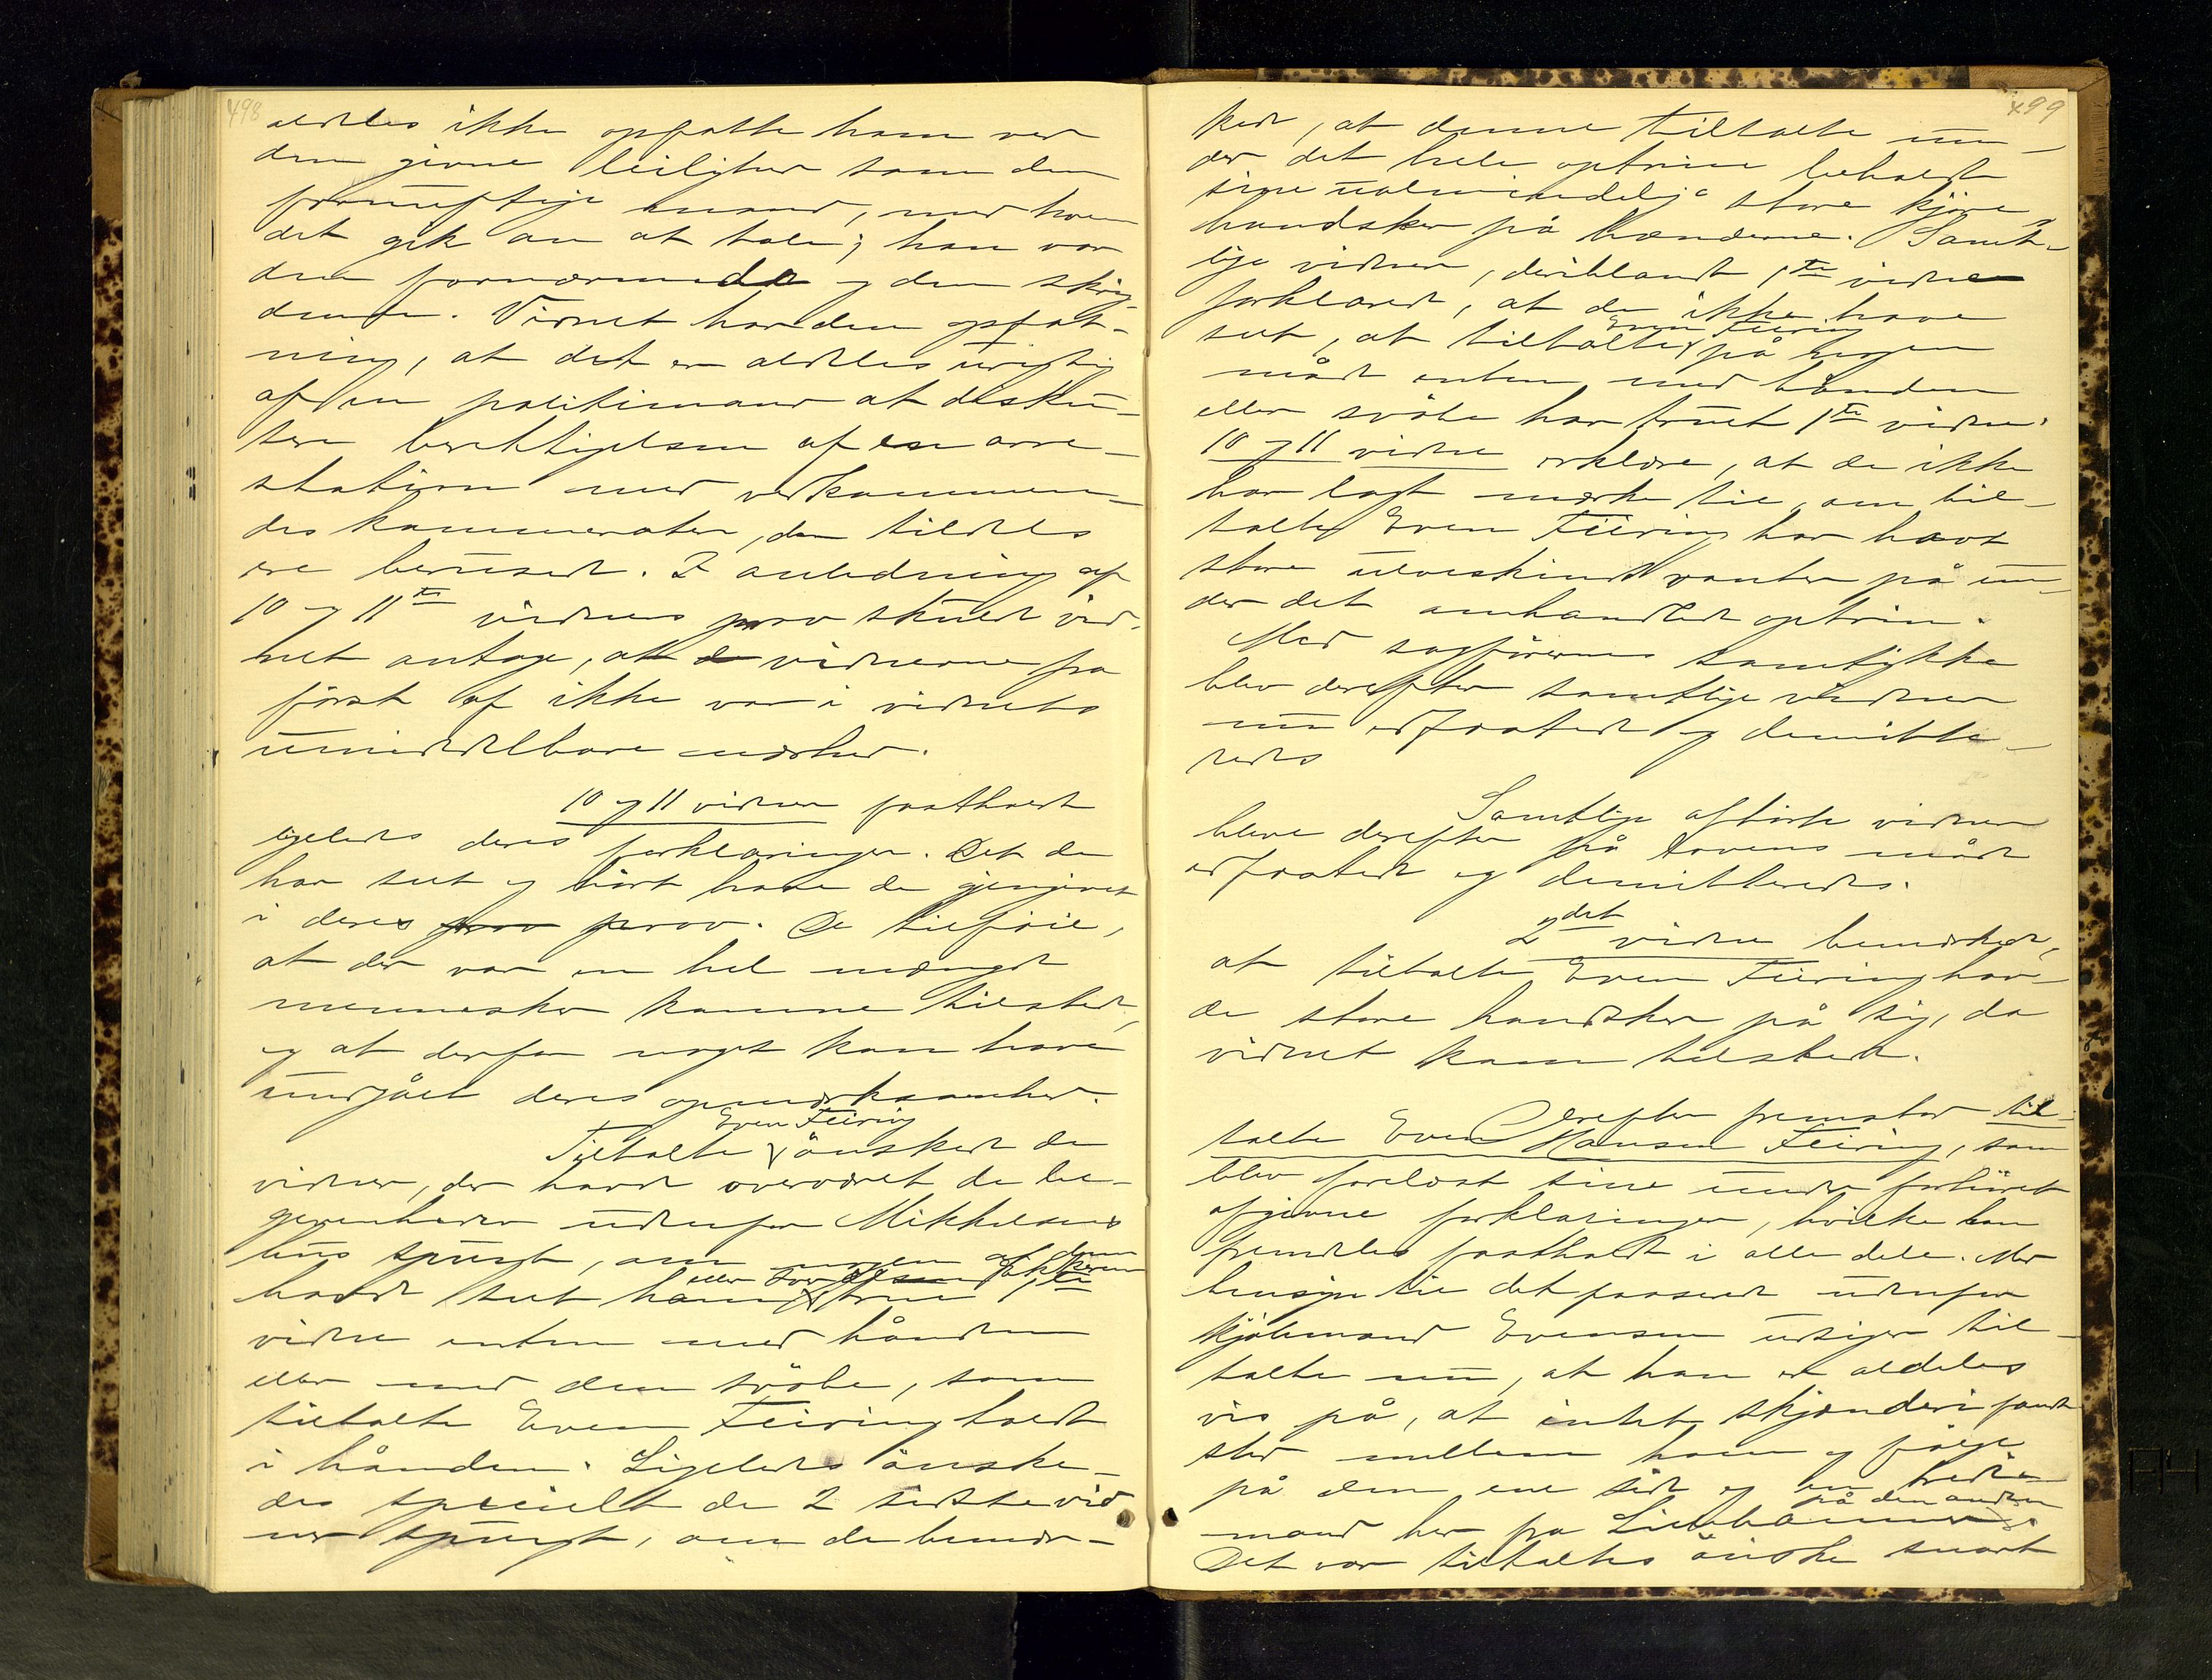 498
aldeles ikke opfatte ham ved
den givne leilighed som den
fornuftige mand, med hvem
det gik an at tale; han var
den fornærmede og den skri-
dende. Vidnet har den opfat-
ning, at det er aldeles urigtig
af en politimand at disku-
tere berettigelsen af en arre-
station med vedkommen-
des kammerater, der tildels
ere beruset. I anledning af
10 og 11te vidnes prov skulde vid-
net antage, at vidnerne fra
först af ikke var i vidnets
umiddelbare nærhed.
10 og 11 vidne fastholdt
ligeledes deres forklaringer. Det de
har seet og hört have de gjengivet
i deres prov. De tilföie,
at der var en hel mængde
mennesker komne tilstede,
og at derfor noget kan have
undgået deres opmærksomhed.
Even Feiring
Tiltalte önskede de
vidner, der havde overværet de be-
givenheder udenfor Mikkelsens
hus spurgt, om nogen af dem
havde seet ham true 1te
vidne enten med hånden
eller med den svöbe, som
tiltalte Even Feiring holdt
i hånden. Ligeledes önske-
des specielt de 2 sidste vid-
ner spurgt, om de bemær-
499
kede, at denne tiltalte un-
der det hele optrin beholdt
sine ualmindelig store kjöre-
handsker på hænderne. Samt-
lige vidner, deriblandt 1te vidne
forklarede, at de ikke have
Even Feiring
seet, at tiltalte på nogen
måde enten med hånden
eller svöbe har truet 1te vidne.
10 og 11 vidne erklære, at de ikke
har lagt mærke til, om til-
talte Even Feiring har havt
store ulveskinds vanter på un-
der det omhandlede optrin.
Med sagförernes samtykke
blev derefter samtlige vidner
nu edfæstede og demitte-
redes
Samtlige afhörte vidner
bleve derefter på lovens måde
edfæstede og demitteredes.
2det vidne bemærkede,
at tiltalte Even Feiring hav-
de store handsker på sig, da
vidnet kom tilstede.
Derefter fremstod til-
talte Even Hansen Feiring, som
blev forelæst sine under forhöret
afgivne forklaringer, hvilke han
fremdeles fastholdt i alle dele. Med
hensyn til det passerede udenfor
kjöbmand Evensen udsiger til-
talte nu, at han er aldeles
vis på, at intet skjænderi fandt
sted mellem ham og fölge
på den ene side og en
på den anden
mand her fra Lillehammer.
Det var tiltaltes önske snart